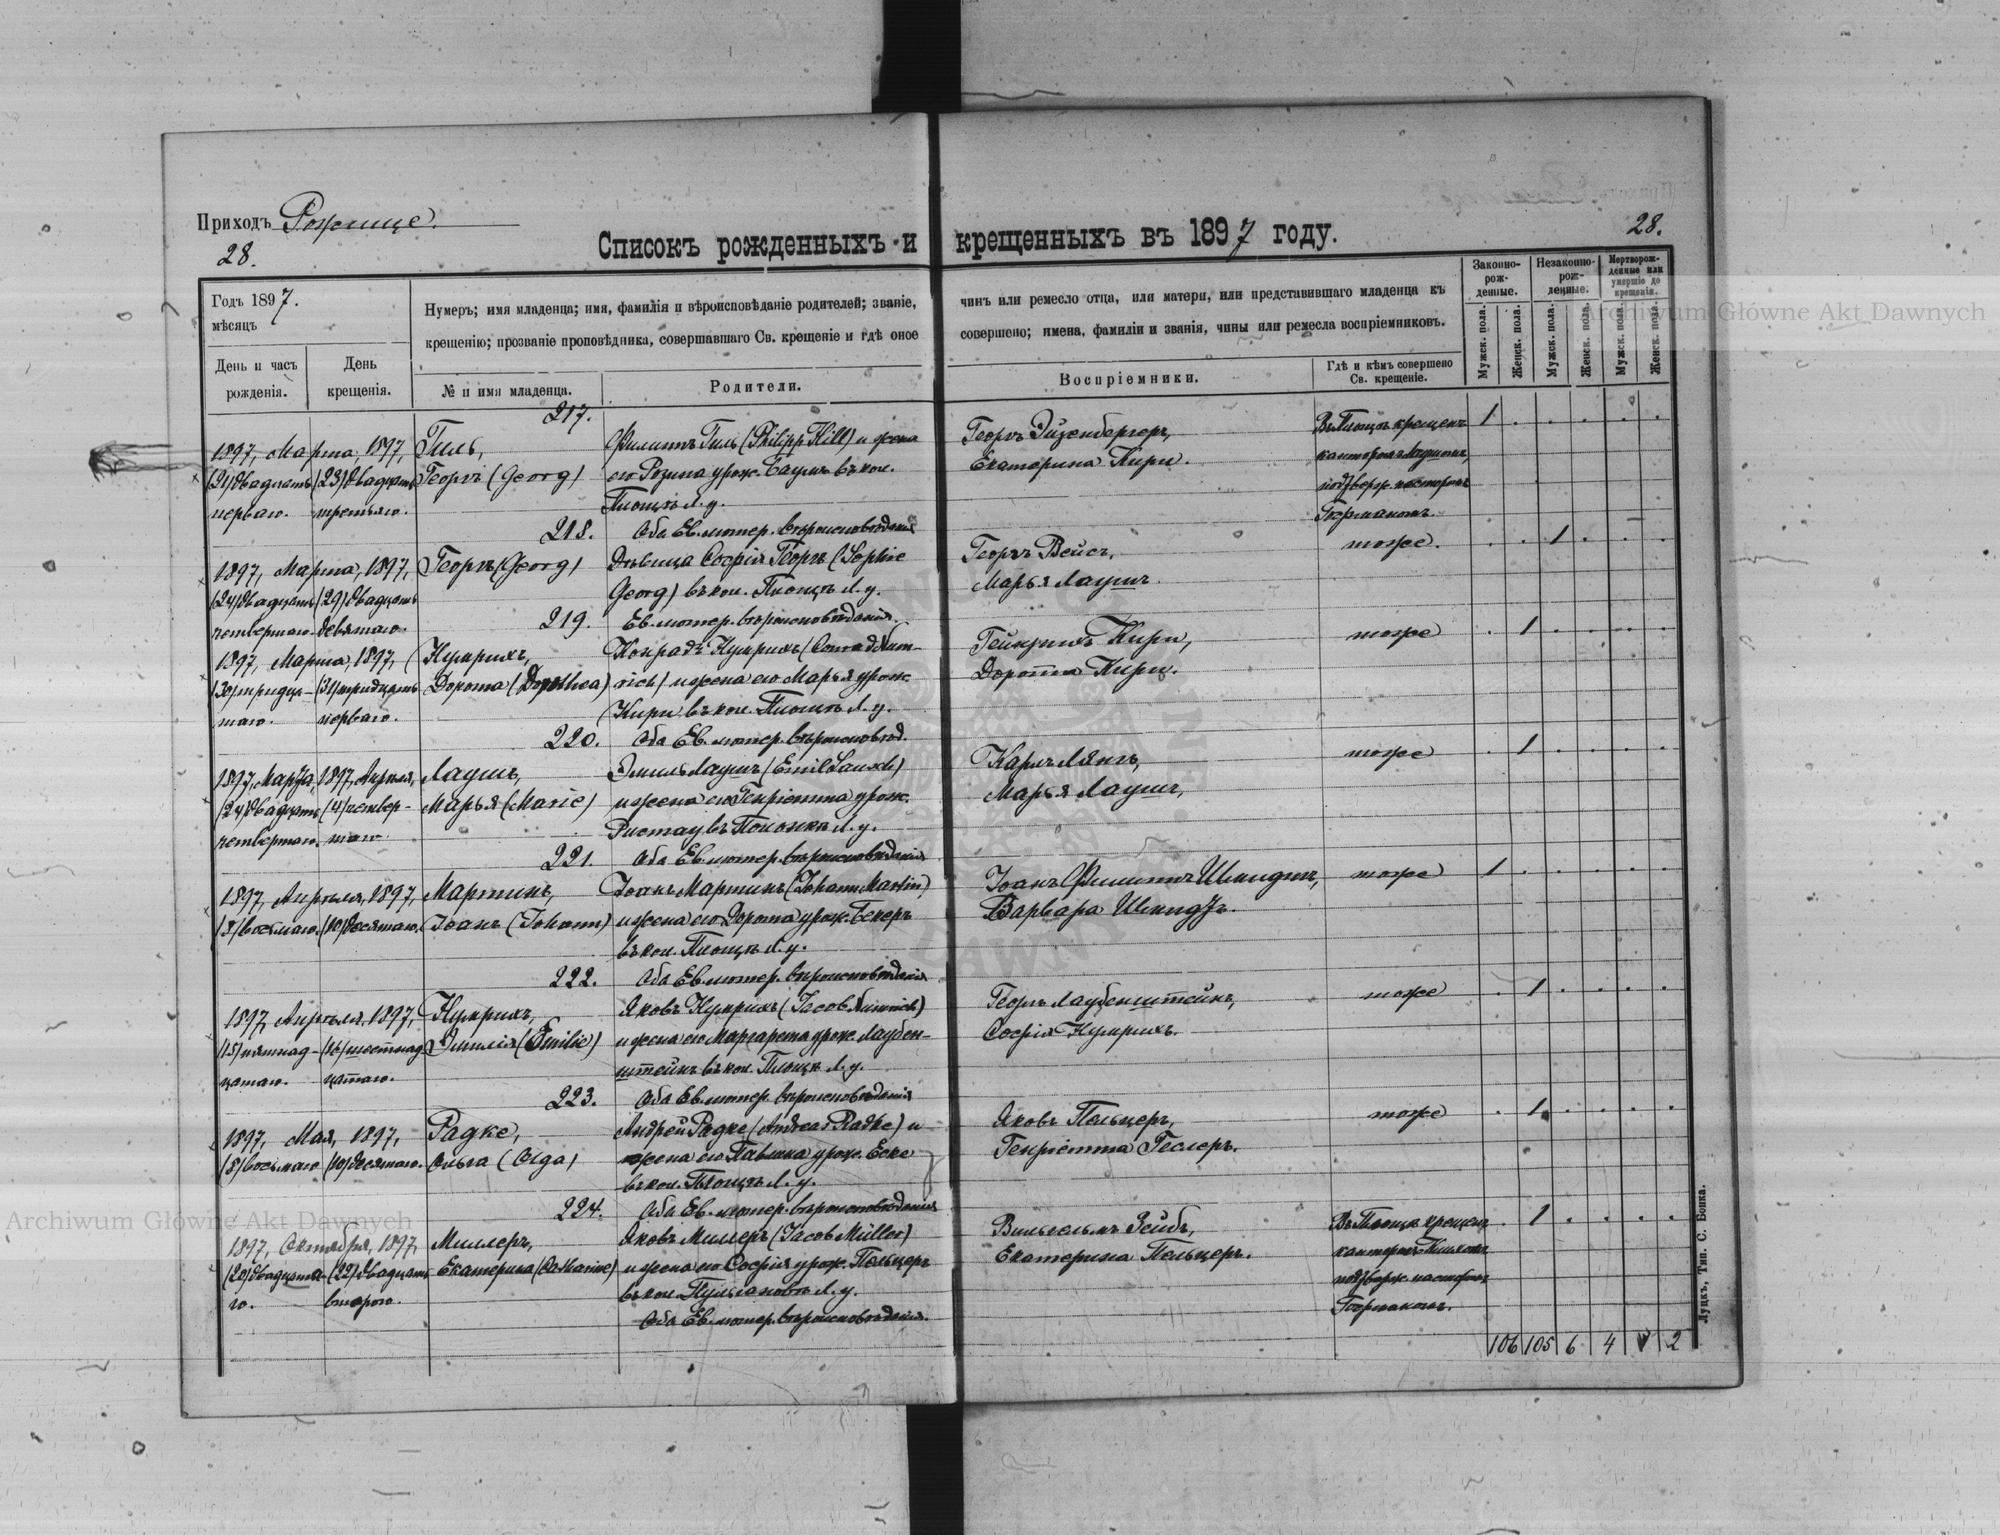 Приходъ Рожище.
28.
28.
Списокъ рожденныхъ и крещенныхъ въ 1897 году.
Годъ 1897.
мѣсяцъ
День и часъ
рожденія.
День
крещенія.
Нумеръ; имя младенца; имя, фамилія и вѣроисповѣданіе родителей; званіе, чинъ или ремесло отца, или матери, или представившаго младенца къ
крещенію; прозваніе проповѣдника, совершавшаго Св. крещеніе и гдѣ оное совершено; имена, фамиліи и званія, чины или ремесла воспріемниковъ.
№ и имя младенца.
Родители.
Воспріемники.
Гдѣ и кѣмъ совершено
Св. крещеніе.
Законно-
рож-
денные.
Незаконно-
рож-
денные.
Мертворож-
денные или
умершіе до
крещенія.
Мужск. пола.
Женск. пола.
Мужск. пола.
Женск. пола.
Мужск. пола.
Женск. пола.
217.
1897, Марта, 1897,
(21) двадцать (23) двадцать
перваго. третьяго.
Гиль,
Георгъ (Georg)
Филиппъ Гиль (Philipp Hill) и жена
его Розина урож. Баумъ въ кол.
Пліощъ Л. у.
Оба Ев. лютер. вѣроисповѣданія
Георгъ Эйзенбергеръ,
Екатерина Кири.
крещенъ
канторомъ Лаушомъ,
подтверж. пасторомъ
1
218.
1897, Марта, 1897,
(24) двадцать (29) двадцать
четвертаго. девятаго.
Георгъ (Georg)
Дѣвица Софія Георгъ (Sophie
Georg) въ кол. Пліощъ Л. у.
Ев. лютер. вѣроисповѣданія.
Георгъ Вейсъ,
Марья Лаушъ.
тоже.
1
219.
1897, Марта, 1897,
(30) тридца- (31) тридцать
таго. перваго.
Кумрихъ,
Дорота (Dorothea)
Конрадъ Кумрихъ (Conrad Kum-
rich) и жена его Марья урож.
Кири въ кол. Пліощъ Л. у.
Оба Ев. лютер. вѣроисповѣд.
Гейнрихъ Кири,
Доротта Кири.
тоже
1
220.
1897, Марта, 1897, Апрѣля,
(24) двадцать (4) четвер-
четвертаго. таго
Лаушъ,
Марья (Marie)
Эмиль Лаушъ (Emil Lausch)
и жена его Генріетта урож.
Ристау въ Полонка Л. у.
Оба Ев. лютер. вѣроисповѣданія
Карлъ Лянгъ,
Марья Лаушъ,
тоже
1
221.
1897, Апрѣля, 1897,
(8) восьмаго. (10) десятаго.
Мартинъ,
Іоанъ (Johann)
Іоанъ Мартинъ (Johann Martin)
и жена его Дорота урож. Бекеръ
въ кол. Пліощъ Л. у.
Оба Ев. лютер. вѣроисповѣданія
Іоанъ Филиппъ Шмидтъ,
Варвара Шмидтъ.
тоже
1
222.
1897, Апрѣля, 1897,
(15) пятнад- (16) шестнад-
цатаго. цатаго.
Кумрихъ,
Эмилія (Emilie)
Яковъ Кумрихъ (Jacob Kumrich)
и жена его Маргарета урож. Лаубен-
штейнъ въ кол. Пліощъ Л. у.
Оба Ев. лютер. вѣроисповѣданія
Георгъ Лаубенштейнъ,
Софія Кумрихъ.
тоже
1
223.
1897, Мая, 1897,
(8) восьмаго (10) десятаго.
Радке,
Ольга (Olga)
Андрей Радке (Andreas Radke) и
жена его Павлина урож. Еске
въ кол. Пліощъ Л. у.
Оба Ев. лютер. вѣроисповѣданія
Яковъ Пельцеръ,
Генріетта Геслеръ.
тоже
1
224.
1897, Октября, 1897,
(20) двадцата- (22) двадцать
го. втораго.
Миллеръ,
Екатерина (Catharine)
Яковъ Миллеръ (Jacob Müller)
и жена его Софія урож. Пельцеръ
въ кол. Пульгановъ Л. у.
Оба Ев. лютер. вѣроисповѣданія.
Вильгельмъ Зейбъ,
Екатерина Пельцеръ.
крещенъ
канторомъ
подтверж. пасторомъ
1
106 105 6 4 2
Луцкъ, Тип. С. Бонка.
Archiwum Główne Akt Dawnych
Archiwum Główne Akt Dawnych